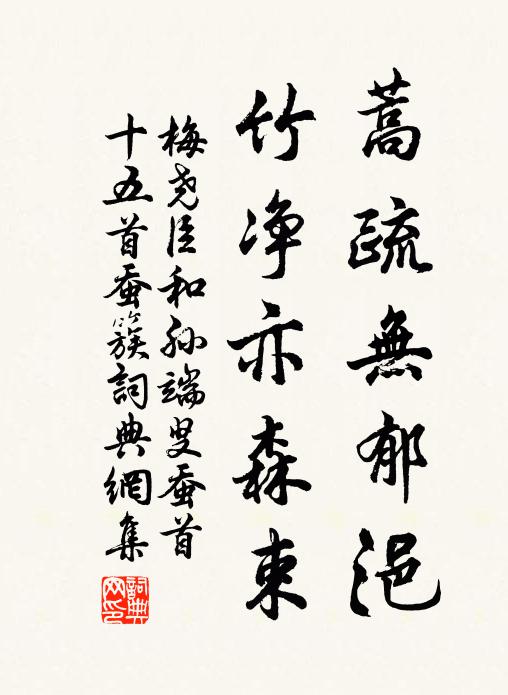 蒿疏無郁浥
竹净亦森束
梅尧臣和孙端叟蚕首
十五首蚕簇詞典網集
詞典网印